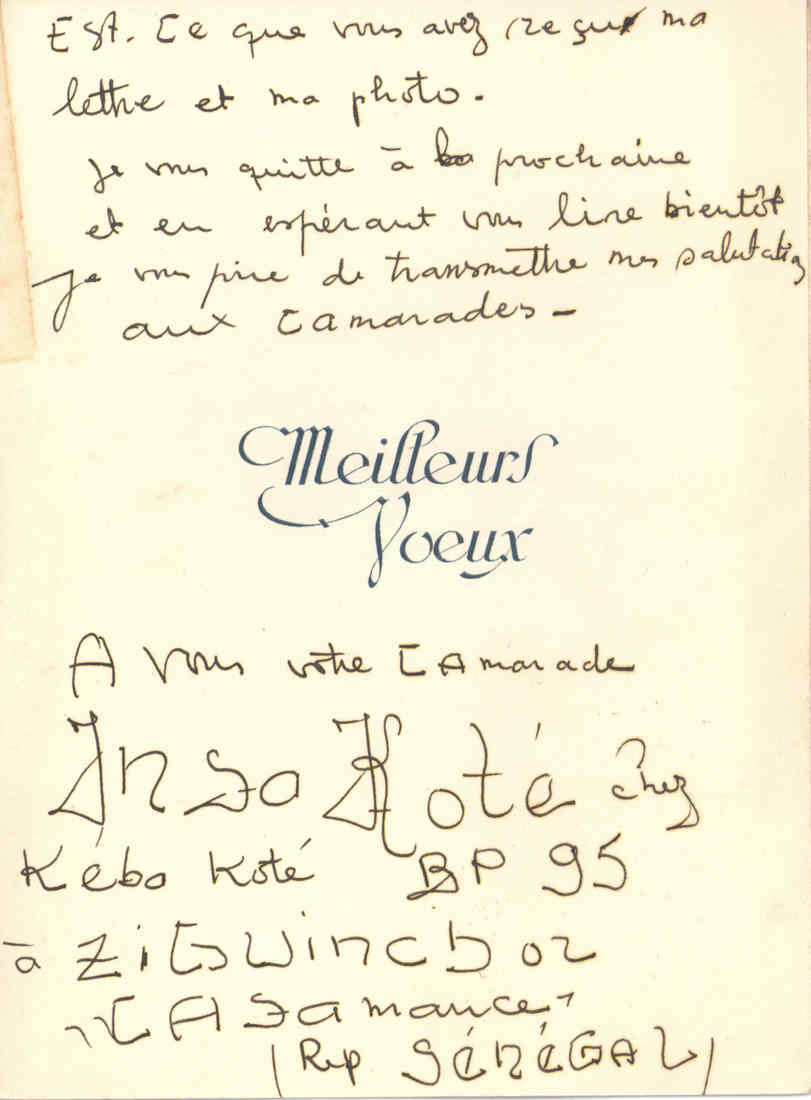 Est. Ce que vous avez reçu ma
lettre et ma photo.
Je vous quitte à la prochaine
et en espérant vous lire bientôt
Je vous prie de transmettre mes salutations
aux CAmarades -
Meilleurs
Voeux
A Vous votre CAmarade
Insa Koté chez
Kéba Koté BP 95
à Ziguinchor
"CASamance"
(Rep SÉNÉGAL)